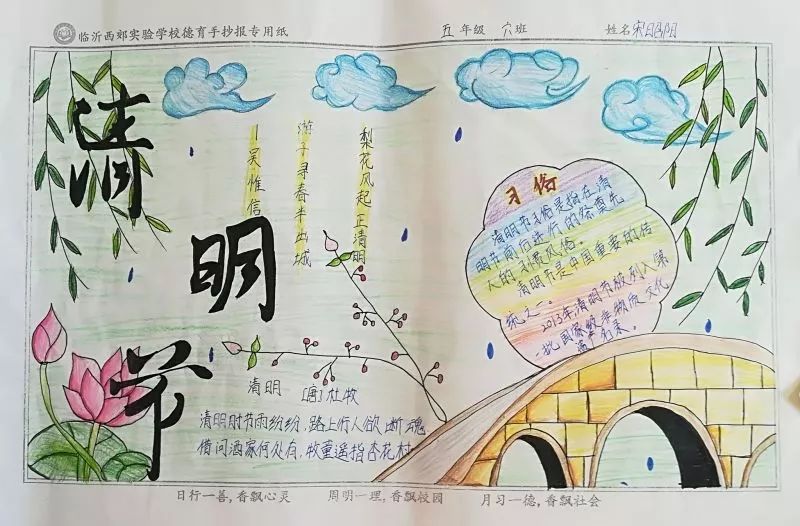 临沂西郊实验学校德育手抄报专用纸 五年级 六班 姓名
清明节
梨花风起正清明
游子寻春半出城
|吴惟信
习俗
清明节习俗是指在清
明节前后进行的祭奠先
人的习惯风俗。
清明节是中国重要的传
统之一。
2013年,清明节被列入第
一批国家级非物质文化
遗产名录。
清明 [唐]杜牧
清明时节雨纷纷,路上行人欲断魂
借问酒家何处有,牧童遥指杏花村
日行一善,香飘心灵 周明一理,香飘校园 月习一德,香飘社会